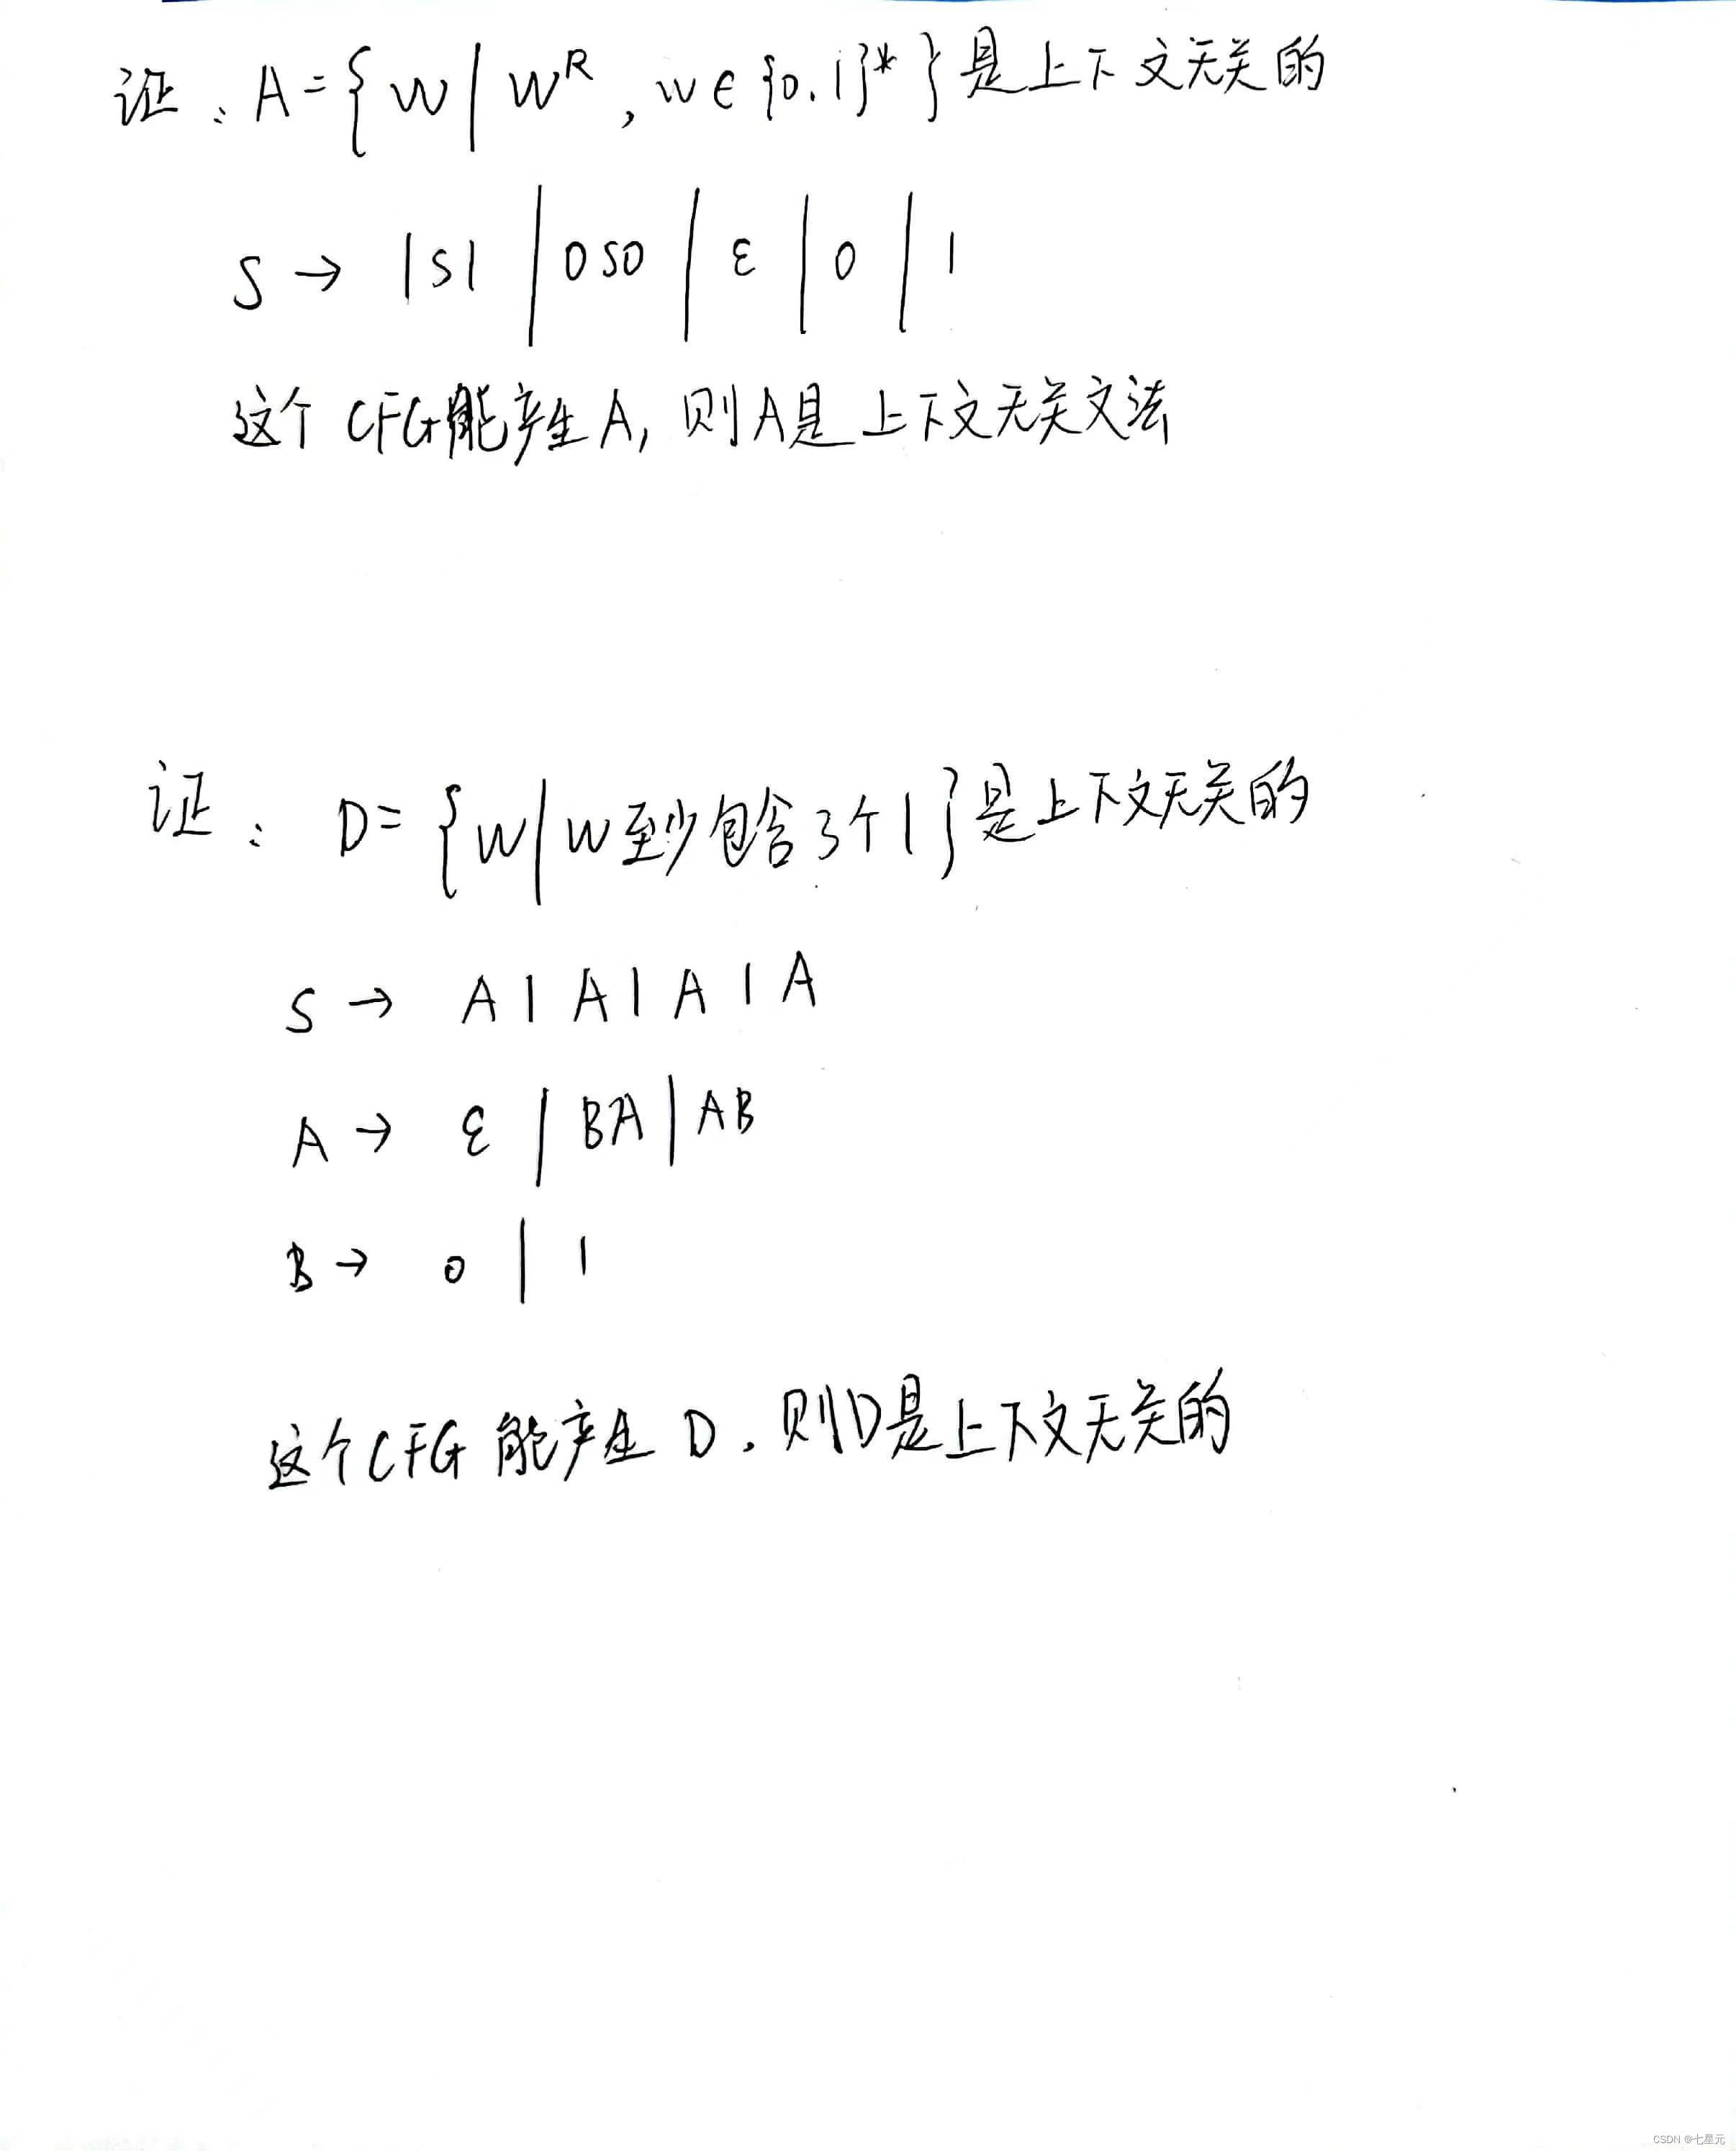 证:A={W|Wᴿ,w∈{0.1}*}是上下文无关的
S → 1S1|0S0|ε|0|1
这个CFG能产生A,则A是上下文无关文法
证: D={W|W至少包含3个1}是上下文无关的
S → A1A1A1A
A → ε|BA|AB
B → 0|1
这个CFG能产生D.则D是上下文无关的
CSDN @七星元